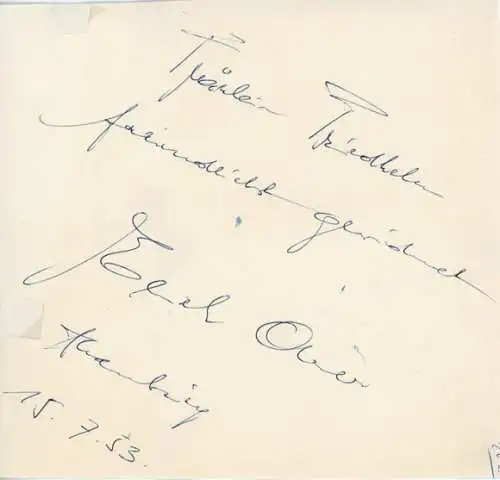 Fräulein Friedhelm
freundlichst gewidmet
Erich
Hamburg
15.7.53.